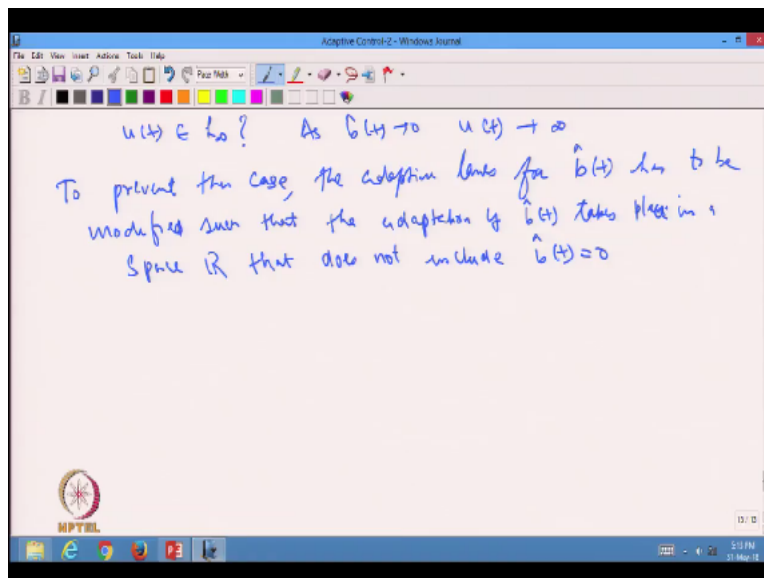 Adaptive Control-2 - Windows Journal
File Edit View Insert Actions Tools Help
Page Width
B I
u(t) ∈ L∞ ? As b̂(t) → 0 u(t) → ∞
To prevent this case, the adaption laws for b̂(t) has to be
modified such that the adaptation of b̂(t) takes place in a
space ℝ that does not include b̂(t) = 0
NPTEL
13 / 13
5:13 PM
31-May-18